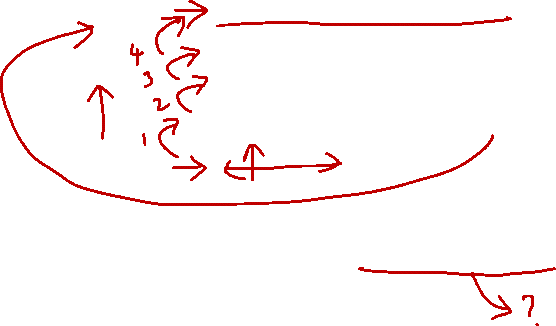 4
3
2
1
?